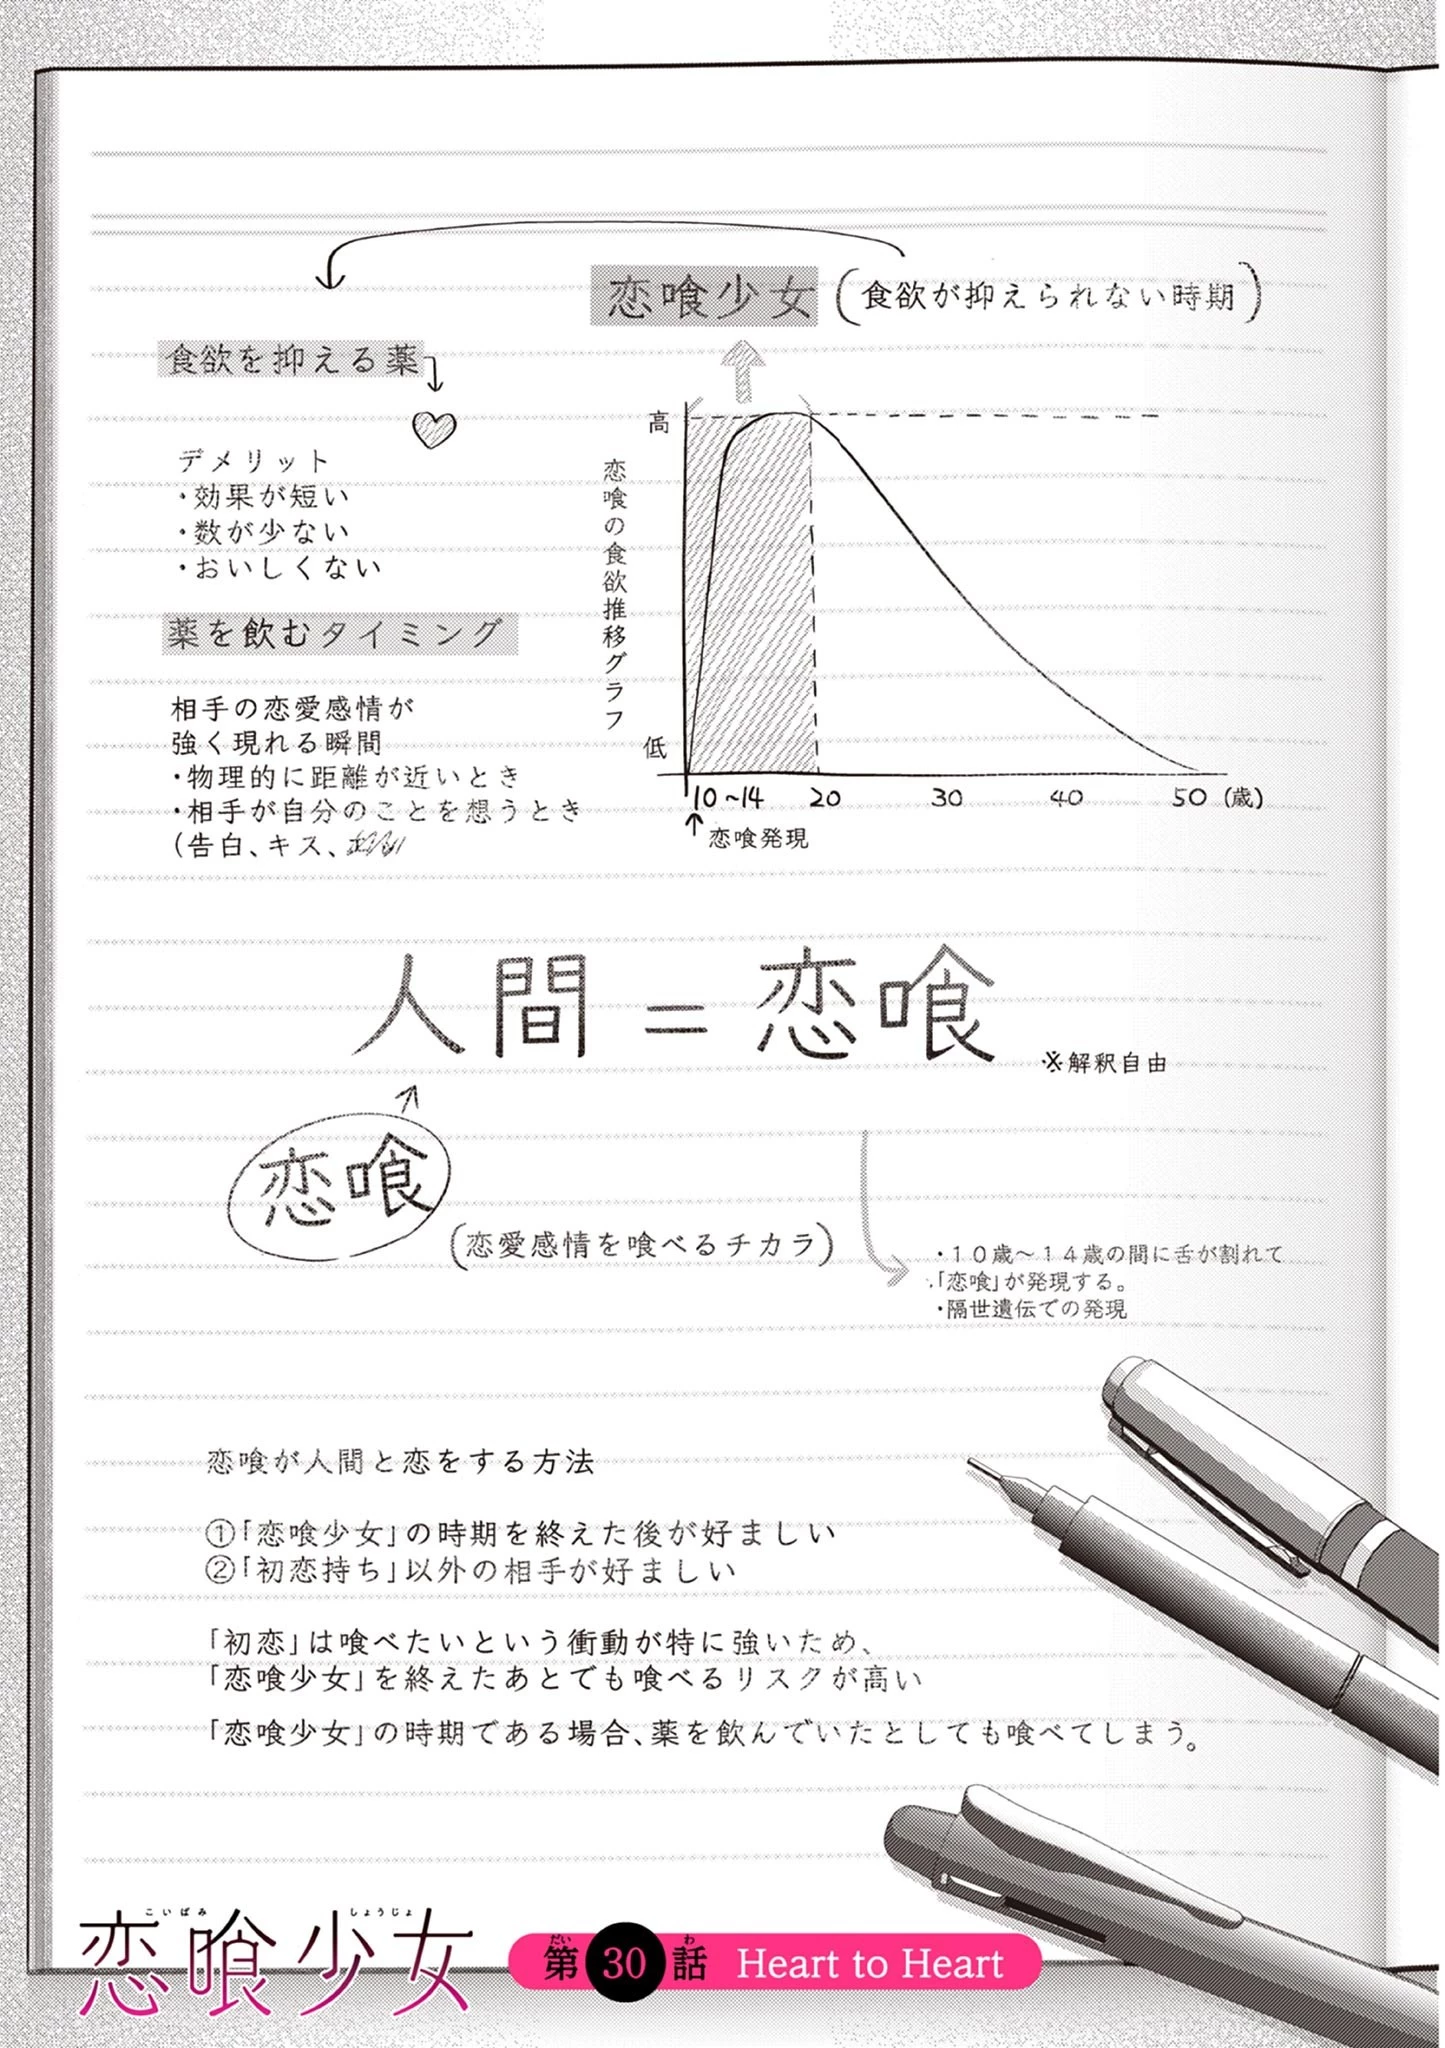 恋喰少女(食欲が抑えられない時期)
食欲を抑える薬
デメリット
・効果が短い
・数が少ない
・おいしくない
薬を飲むタイミング
相手の恋愛感情が
強く現れる瞬間
・物理的に距離が近いとき
・相手が自分のことを想うとき
(告白、キス、
恋喰の食欲推移グラフ
高
低
10~14 20 30 40 50 (歳)
恋喰発現
人間=恋喰
※解釈自由
恋喰
(恋愛感情を喰べるチカラ)
・10歳~14歳の間に舌が割れて
「恋喰」が発現する。
・隔世遺伝での発現
恋喰が人間と恋をする方法
①「恋喰少女」の時期を終えた後が好ましい
②「初恋持ち」以外の相手が好ましい
「初恋」は喰べたいという衝動が特に強いため、
「恋喰少女」を終えたあとでも喰べるリスクが高い
「恋喰少女」の時期である場合、薬を飲んでいたとしても喰べてしまう。
こいばみ しょうじょ
恋喰少女
だい わ
第30話 Heart to Heart